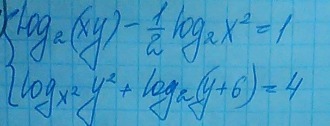 log₂(xy) - 1/2 log₂x² = 1
log_{x²} y² + log₂(y+6) = 4